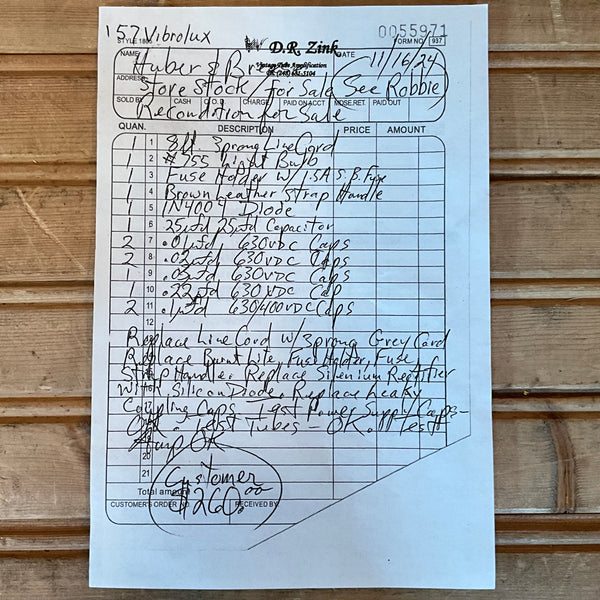 '57 Vibrolux
0055971
STYLE
D.R. Zink
FORM NO. 937
NAME Huber & DATE 11/16/24
Vintage Tube Amplification
ADDRESS Store Stock / For Sale See Robbie
SOLD BY CASH C.O.D. CHARGE PAID ON ACCT MDSE. RET. PAID OUT
Recondition for Sale
QUAN. DESCRIPTION PRICE AMOUNT
1 1 8ft. 3prong Line Cord
1 2 #755 Light Bulb
1 3 Fuse Holder w/ 1.5A S.B. Fuse
1 4 Brown Leather Strap Handle
1 5 1N4007 Diode
1 6 25µfd 25 Capacitor
2 7 .01µfd, 630VDC Caps
2 8 .02µfd, 630VDC Caps
1 9 630VDC Caps
1 10 .22µfd 630VDC Cap
2 11 .1µfd 630/400VDC Caps
12
Replace Line Cord w/3prong Grey Cord
Replace Burnt Lite, Fuse Holder, Fuse,
Strap Handle, Replace Silenium Rectifier
With Silicon Diode, Replace Leaky
Coupling Caps - Test Power Supply Caps -
OK - Test Tubes - OK. Test
Amp OK
20
21
Customer
Total amount
$260.00
CUSTOMER'S ORDER NO. RECEIVED BY